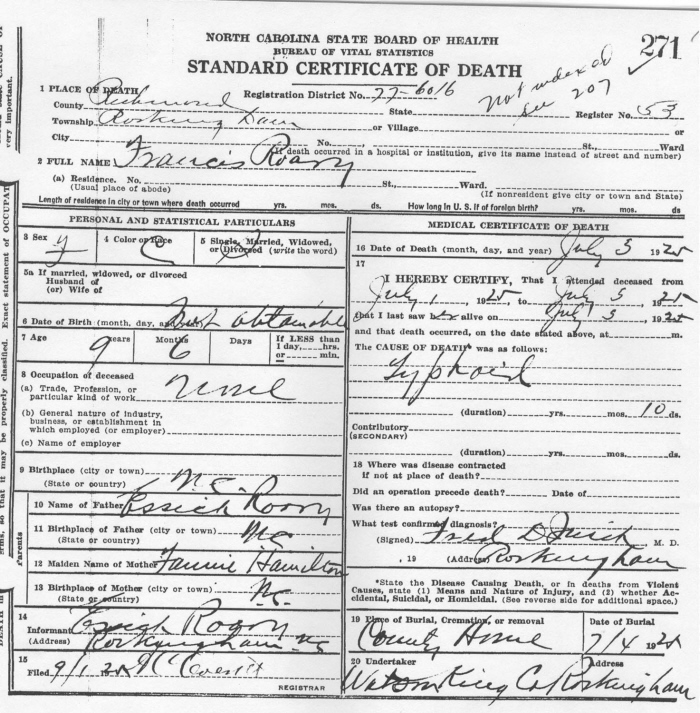 NORTH CAROLINA STATE BOARD OF HEALTH
BUREAU OF VITAL STATISTICS
STANDARD CERTIFICATE OF DEATH
271
1 PLACE OF DEATH
Registration District No. 77-6016
Not indexed
See 207
County Richmond State Register No. 53
Township Rockingham or Village
City No. St., Ward
(If death occurred in a hospital or institution, give its name instead of street and number)
2 FULL NAME Francis Roary
(a) Residence. No. St., Ward.
(Usual place of abode) (If nonresident give city or town and State)
Length of residence in city or town where death occurred yrs. mos. ds. How long in U. S. if of foreign birth? yrs. mos. ds.
PERSONAL AND STATISTICAL PARTICULARS
3 Sex 4 Color or Race C 5 Single, Married, Widowed,
or Divorced (write the word) S
5a If married, widowed, or divorced
Husband of
(or) Wife of
6 Date of Birth (month, day, and year) Not obtainable
7 Age 9 Years 6 Months Days If LESS than
1 day, hrs.
or min.
8 Occupation of deceased
(a) Trade, Profession, or
particular kind of work None
(b) General nature of industry,
business, or establishment in
which employed (or employer)
(c) Name of employer
9 Birthplace (city or town)
(State or country) N.C.
Parents
10 Name of Father Essich Roary
11 Birthplace of Father (city or town)
(State or country) NC
12 Maiden Name of Mother Fannie Hamilton
13 Birthplace of Mother (city or town)
(State or country) N.C.
14
Informant Essich Roary
(Address) Rockingham NC
15
Filed 9/1 25
REGISTRAR
MEDICAL CERTIFICATE OF DEATH
16 Date of Death (month, day, and year) July 5 1925
17
I HEREBY CERTIFY, That I attended deceased from
July 1, 1925, to July 5, 1925
that I last saw her alive on July 5, 1925
and that death occurred, on the date stated above, at m.
The CAUSE OF DEATH* was as follows:
Typhoid
(duration) yrs. mos. 10 ds.
Contributory
(SECONDARY)
(duration) yrs. mos. ds.
18 Where was disease contracted
if not at place of death?
Did an operation precede death? Date of
Was there an autopsy?
What test confirmed diagnosis?
(Signed) Fred M. D.
, 19 (Address) Rockingham
*State the Disease Causing Death, or in deaths from Violent
Causes, state (1) Means and Nature of Injury, and (2) whether Ac-
cidental, Suicidal, or Homicidal. (See reverse side for additional space.)
19 Place of Burial, Cremation, or removal Date of Burial
County Home 7/4 1925
20 Undertaker Address
Watson King Co Rockingham
very important.
Exact statement of OCCUPAT
properly classified.
so that it may be
DEATH in